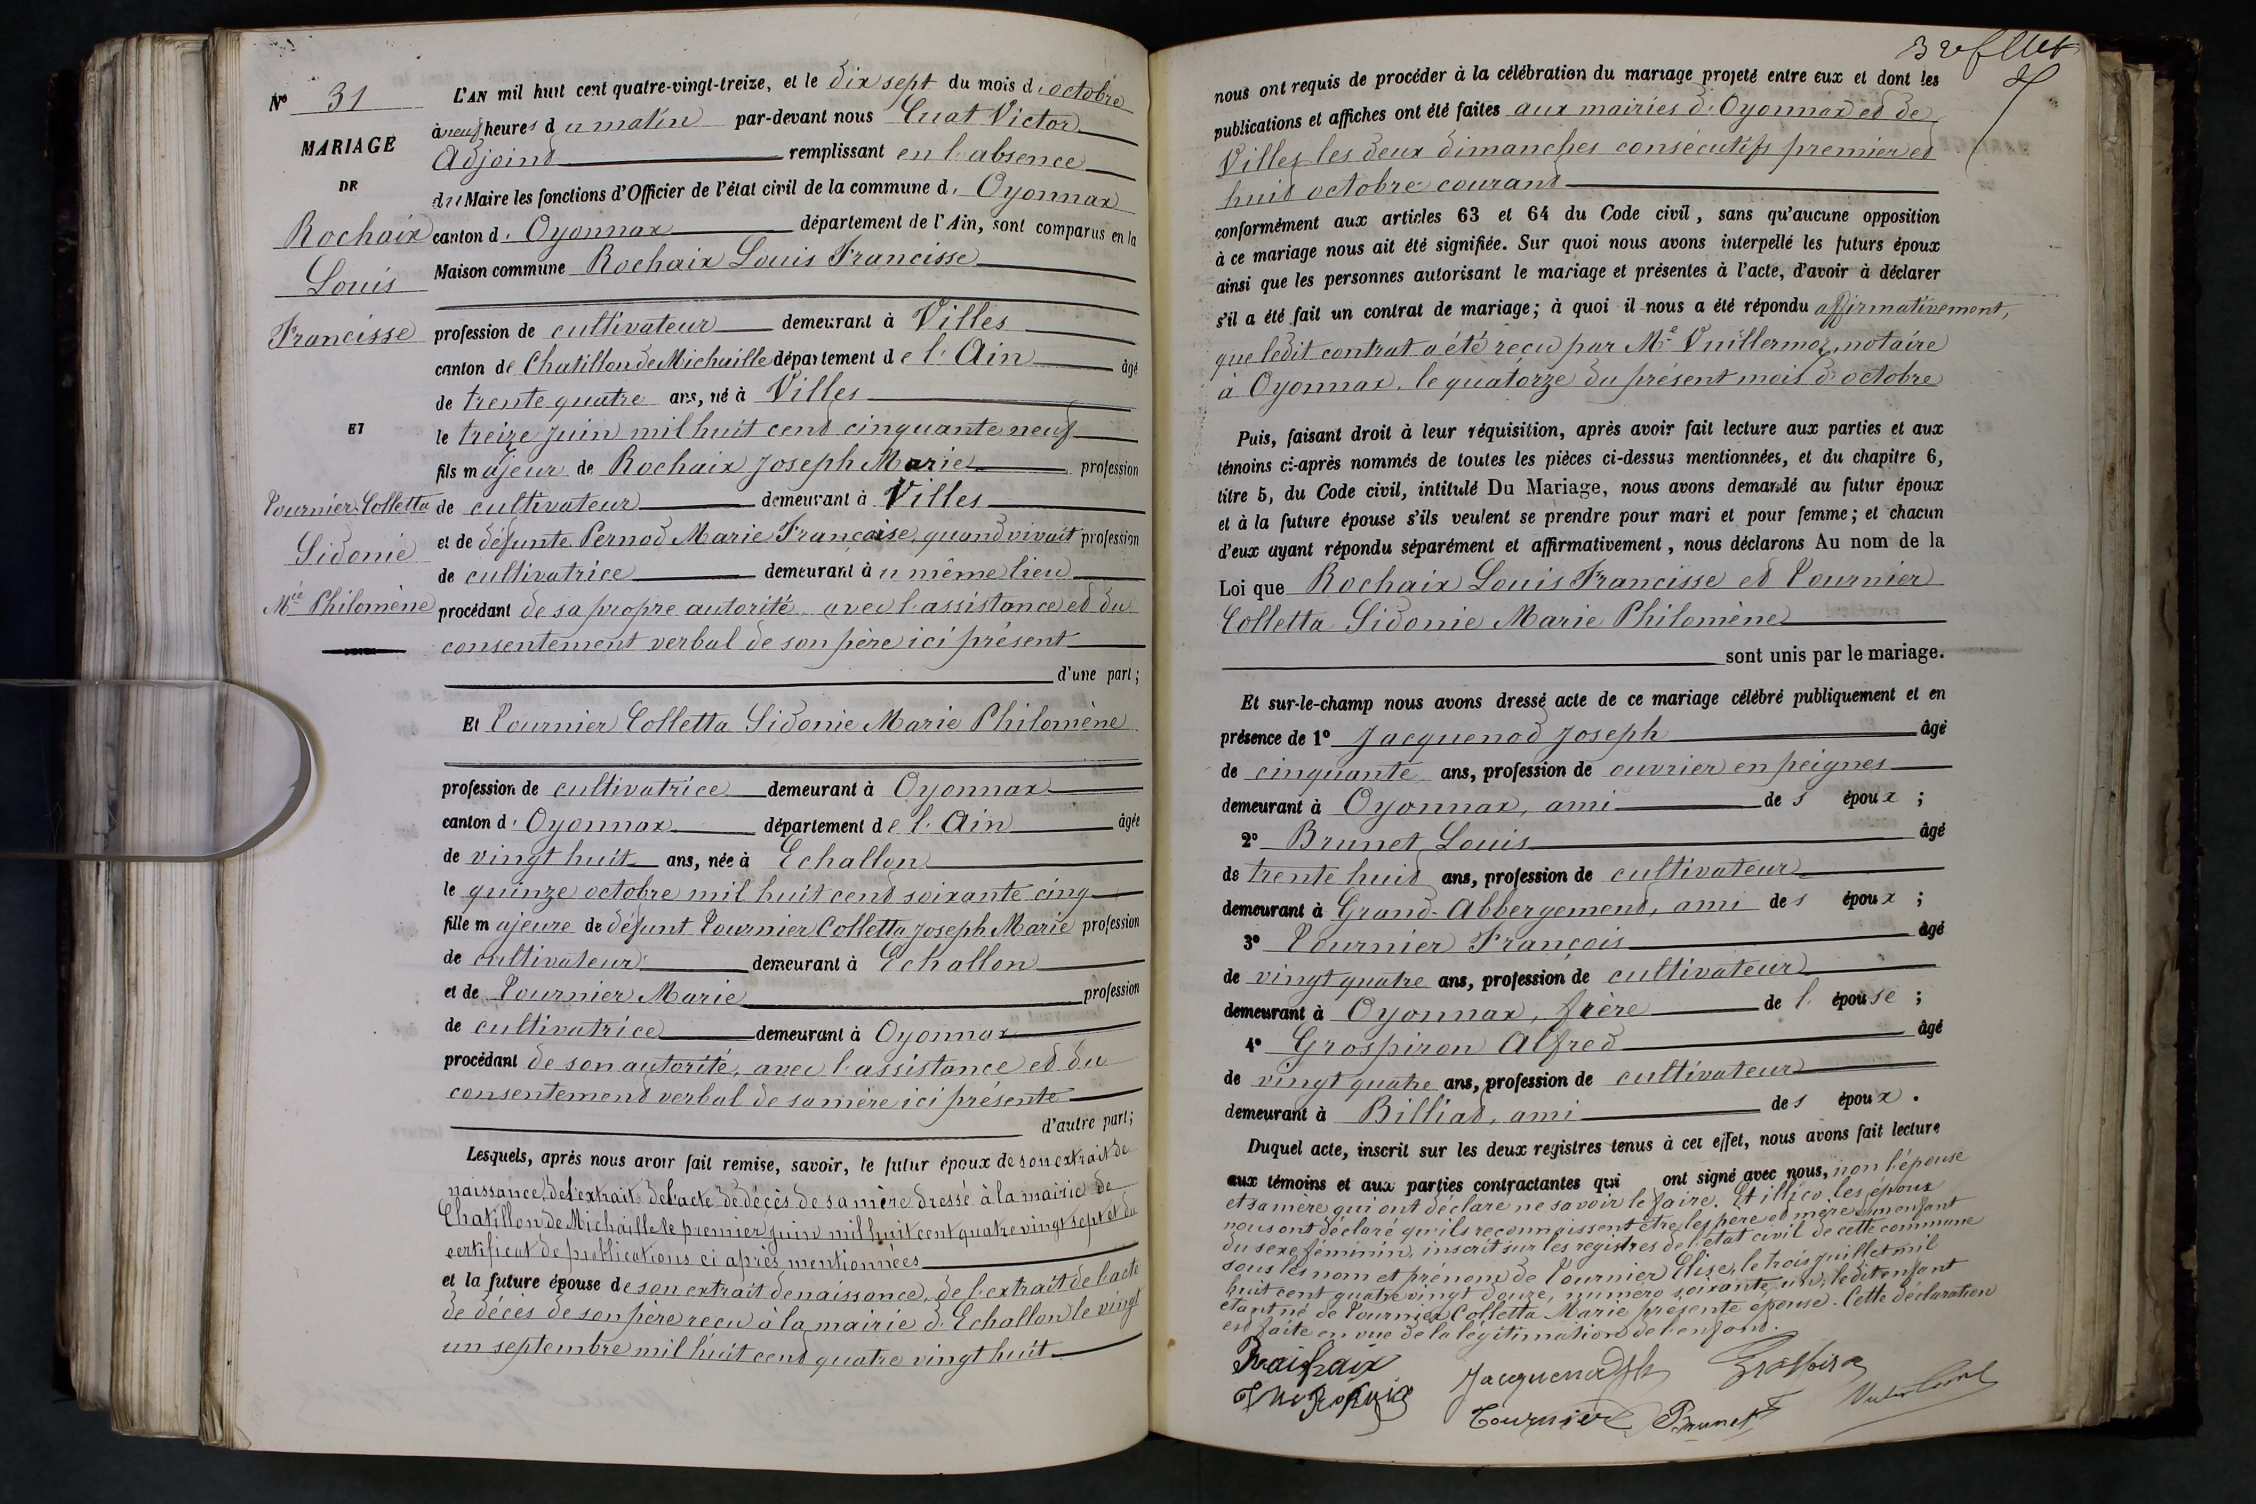 N° 31
MARIAGE
DE
Rochaix
Louis
Francisse
ET
Tournier Colletta
Sidonie
Mie Philomène
L'AN mil huit cent quatre-vingt-treize, et le dix sept du mois d'octobre
à neuf heures du matin par-devant nous Cuat Victor
Adjoint remplissant en l'absence
du Maire les fonctions d'Officier de l'état civil de la commune d'Oyonnax
canton d'Oyonnax département de l'Ain, sont comparus en la
Maison commune Rochaix Louis Francisse
profession de cultivateur demeurant à Villes
canton de Chatillon de Michaille département de l'Ain âgé
de trente quatre ans, né à Villes
le treize juin mil huit cent cinquante neuf
fils majeur de Rochaix Joseph Marie profession
de cultivateur demeurant à Villes
et de défunte Pernod Marie Françoise, quand vivait profession
de cultivatrice demeurant au même lieu
procédant de sa propre autorité avec l'assistance et du
consentement verbal de son père ici présent
d'une part;
Et Tournier Colletta Sidonie Marie Philomène
profession de cultivatrice demeurant à Oyonnax
canton d'Oyonnax département de l'Ain âgée
de vingt huit ans, née à Echallon
le quinze octobre mil huit cent soixante cinq
fille majeure de défunt Tournier Colletta Joseph Marie profession
de cultivateur demeurant à Echallon
et de Tournier Marie profession
de cultivatrice demeurant à Oyonnax
procédant de son autorité, avec l'assistance et du
consentement verbal de sa mère ici présente
d'autre part;
Lesquels, après nous avoir fait remise, savoir, le futur époux de son extrait de
naissance, de l'extrait de l'acte de décès de sa mère dressé à la mairie de
Chatillon de Michaille le premier juin mil huit cent quatre vingt sept et du
certificat de publications ci après mentionnées
et la future épouse de son extrait de naissance, de l'extrait de l'acte
de décès de son père reçu à la mairie d'Echallon le vingt
un septembre mil huit cent quatre vingt huit
nous ont requis de procéder à la célébration du mariage projeté entre eux et dont les
publications et affiches ont été faites aux mairies d'Oyonnax et de
Villes les deux dimanches consécutifs premier et
huit octobre courant
conformément aux articles 63 et 64 du Code civil, sans qu'aucune opposition
à ce mariage nous ait été signifiée. Sur quoi nous avons interpellé les futurs époux
ainsi que les personnes autorisant le mariage et présentes à l'acte, d'avoir à déclarer
s'il a été fait un contrat de mariage; à quoi il nous a été répondu affirmativement,
que ledit contrat a été reçu par Me Vuillermoz, notaire
à Oyonnax, le quatorze du présent mois d'octobre
Puis, faisant droit à leur réquisition, après avoir fait lecture aux parties et aux
témoins ci-après nommés de toutes les pièces ci-dessus mentionnées, et du chapitre 6,
titre 5, du Code civil, intitulé Du Mariage, nous avons demandé au futur époux
et à la future épouse s'ils veulent se prendre pour mari et pour femme; et chacun
d'eux ayant répondu séparément et affirmativement, nous déclarons Au nom de la
Loi que Rochaix Louis Francisse et Tournier
Colletta Sidonie Marie Philomène
sont unis par le mariage.
Et sur-le-champ nous avons dressé acte de ce mariage célébré publiquement et en
présence de 1° Jacquenod Joseph âgé
de cinquante ans, profession de ouvrier en peignes
demeurant à Oyonnax, ami des époux;
2° Brunet Louis âgé
de trente huit ans, profession de cultivateur
demeurant à Grand-Abbergement, ami des époux;
3° Tournier François âgé
de vingt quatre ans, profession de cultivateur
demeurant à Oyonnax, frère de l'épouse;
4° Grospiron Alfred âgé
de vingt quatre ans, profession de cultivateur
demeurant à Billiad, ami des époux.
Duquel acte, inscrit sur les deux registres tenus à cet effet, nous avons fait lecture
aux témoins et aux parties contractantes qui ont signé avec nous, non l'épouse
et sa mère qui ont déclaré ne savoir le faire. Et illico les époux
nous ont déclaré qu'ils reconnaissent être les père et mère d'un enfant
du sexe féminin, inscrit sur les registres de l'état civil de cette commune
sous les nom et prénom de Tournier Elise, le trois juillet mil
huit cent quatre vingt douze, numéro soixante un, ledit enfant
étant né de Tournier Colletta Marie présente épouse. Cette déclaration
est faite en vue de la légitimation de l'enfant.
Jacquenod Jh
Tournier
Brunet